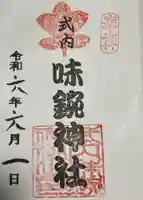 式内
味鋺神社
令和六年六月一日